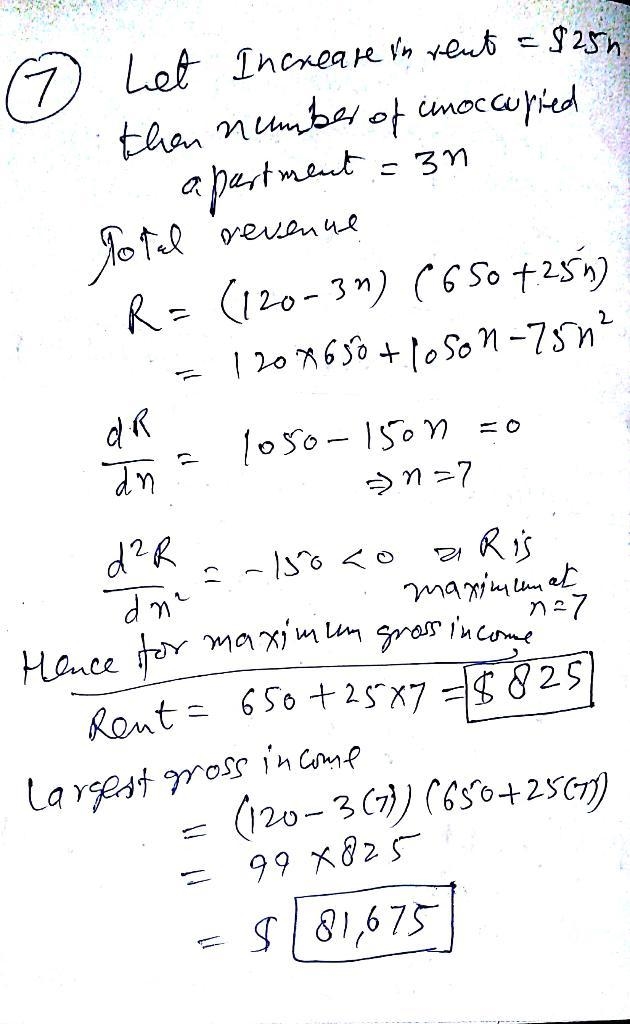 7 Let Increase in rent = $25n
then number of unoccupied
apartment = 3n
Total revenue
R = (120-3n) (650+25n)
= 120×650+1050n-75n²
dR/dn = 1050-150n =0
⇒n=7
d²R/dn² = -150<0 ⇒ R is
maximum at
n=7
Hence for maximum gross income
Rent = 650+25×7 = $825
Largest gross income
= (120-3(7)) (650+25(7))
= 99×825
= $ 81,675